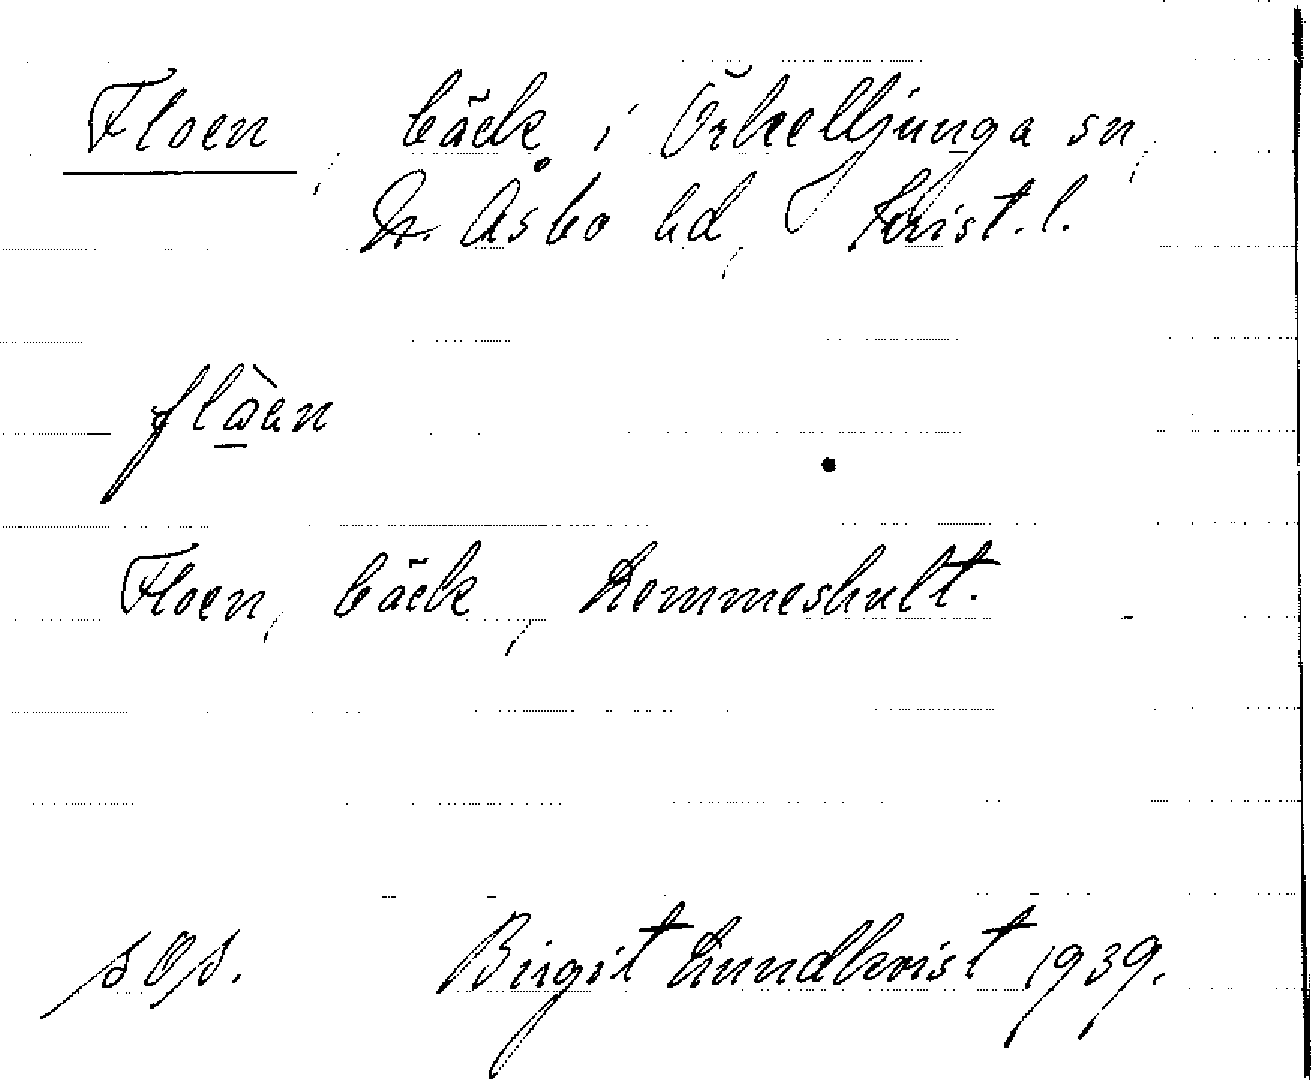 Floen, bäck i Örkelljunga sn,
N. Åsbo hd, Krist. l.
Floen, bäck, Lemmeshult.
sOs. Birgit Lundkvist 1939.